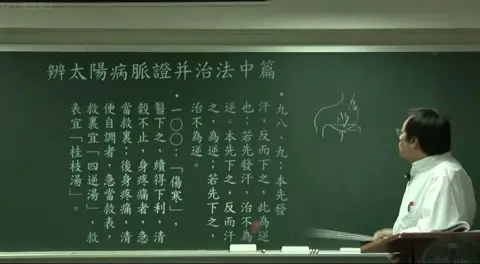 辨太陽病脈證并治法中篇
•九八、九:本先發
汗，反而下之，此為逆
也；若先發汗，治不為
逆。本先下之，反而汗
之，為逆；若先下之，
治不為逆。
•一○○：「傷寒」，
醫下之，續得下利，清
穀不止，身疼痛者，急
當救裏；後身疼痛，清
便自調者，急當救表，
救裏宜「四逆湯」，救
表宜「桂枝湯」。